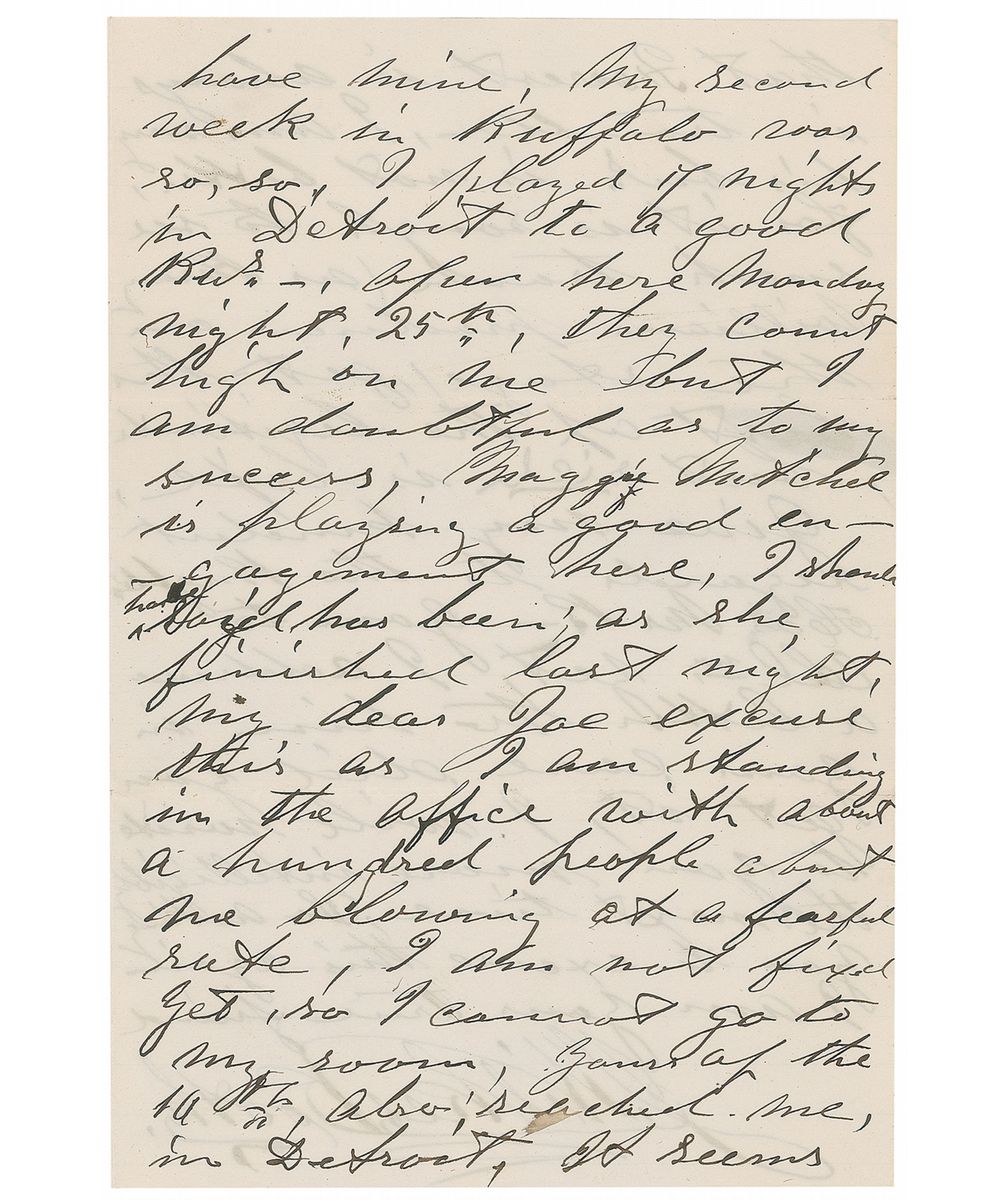 have mine, My second
week in Buffalo was
so, so, I played 7 nights
in Detroit to a good
Bus —, open here Monday
night, 25th, they count
high on me but I
am doubtful as to my
success, Maggie Mitchel
is playing a good en—
—gagement here, I should
have said has been, as she
finished last night,
my dear Joe excuse
this as I am standing
in the office with about
a hundred people about
me blowing at a fearful
rate, I am not fixed
yet, so I cannot go to
my room, Yours of the
10th, also, reached me,
in Detroit, It seems